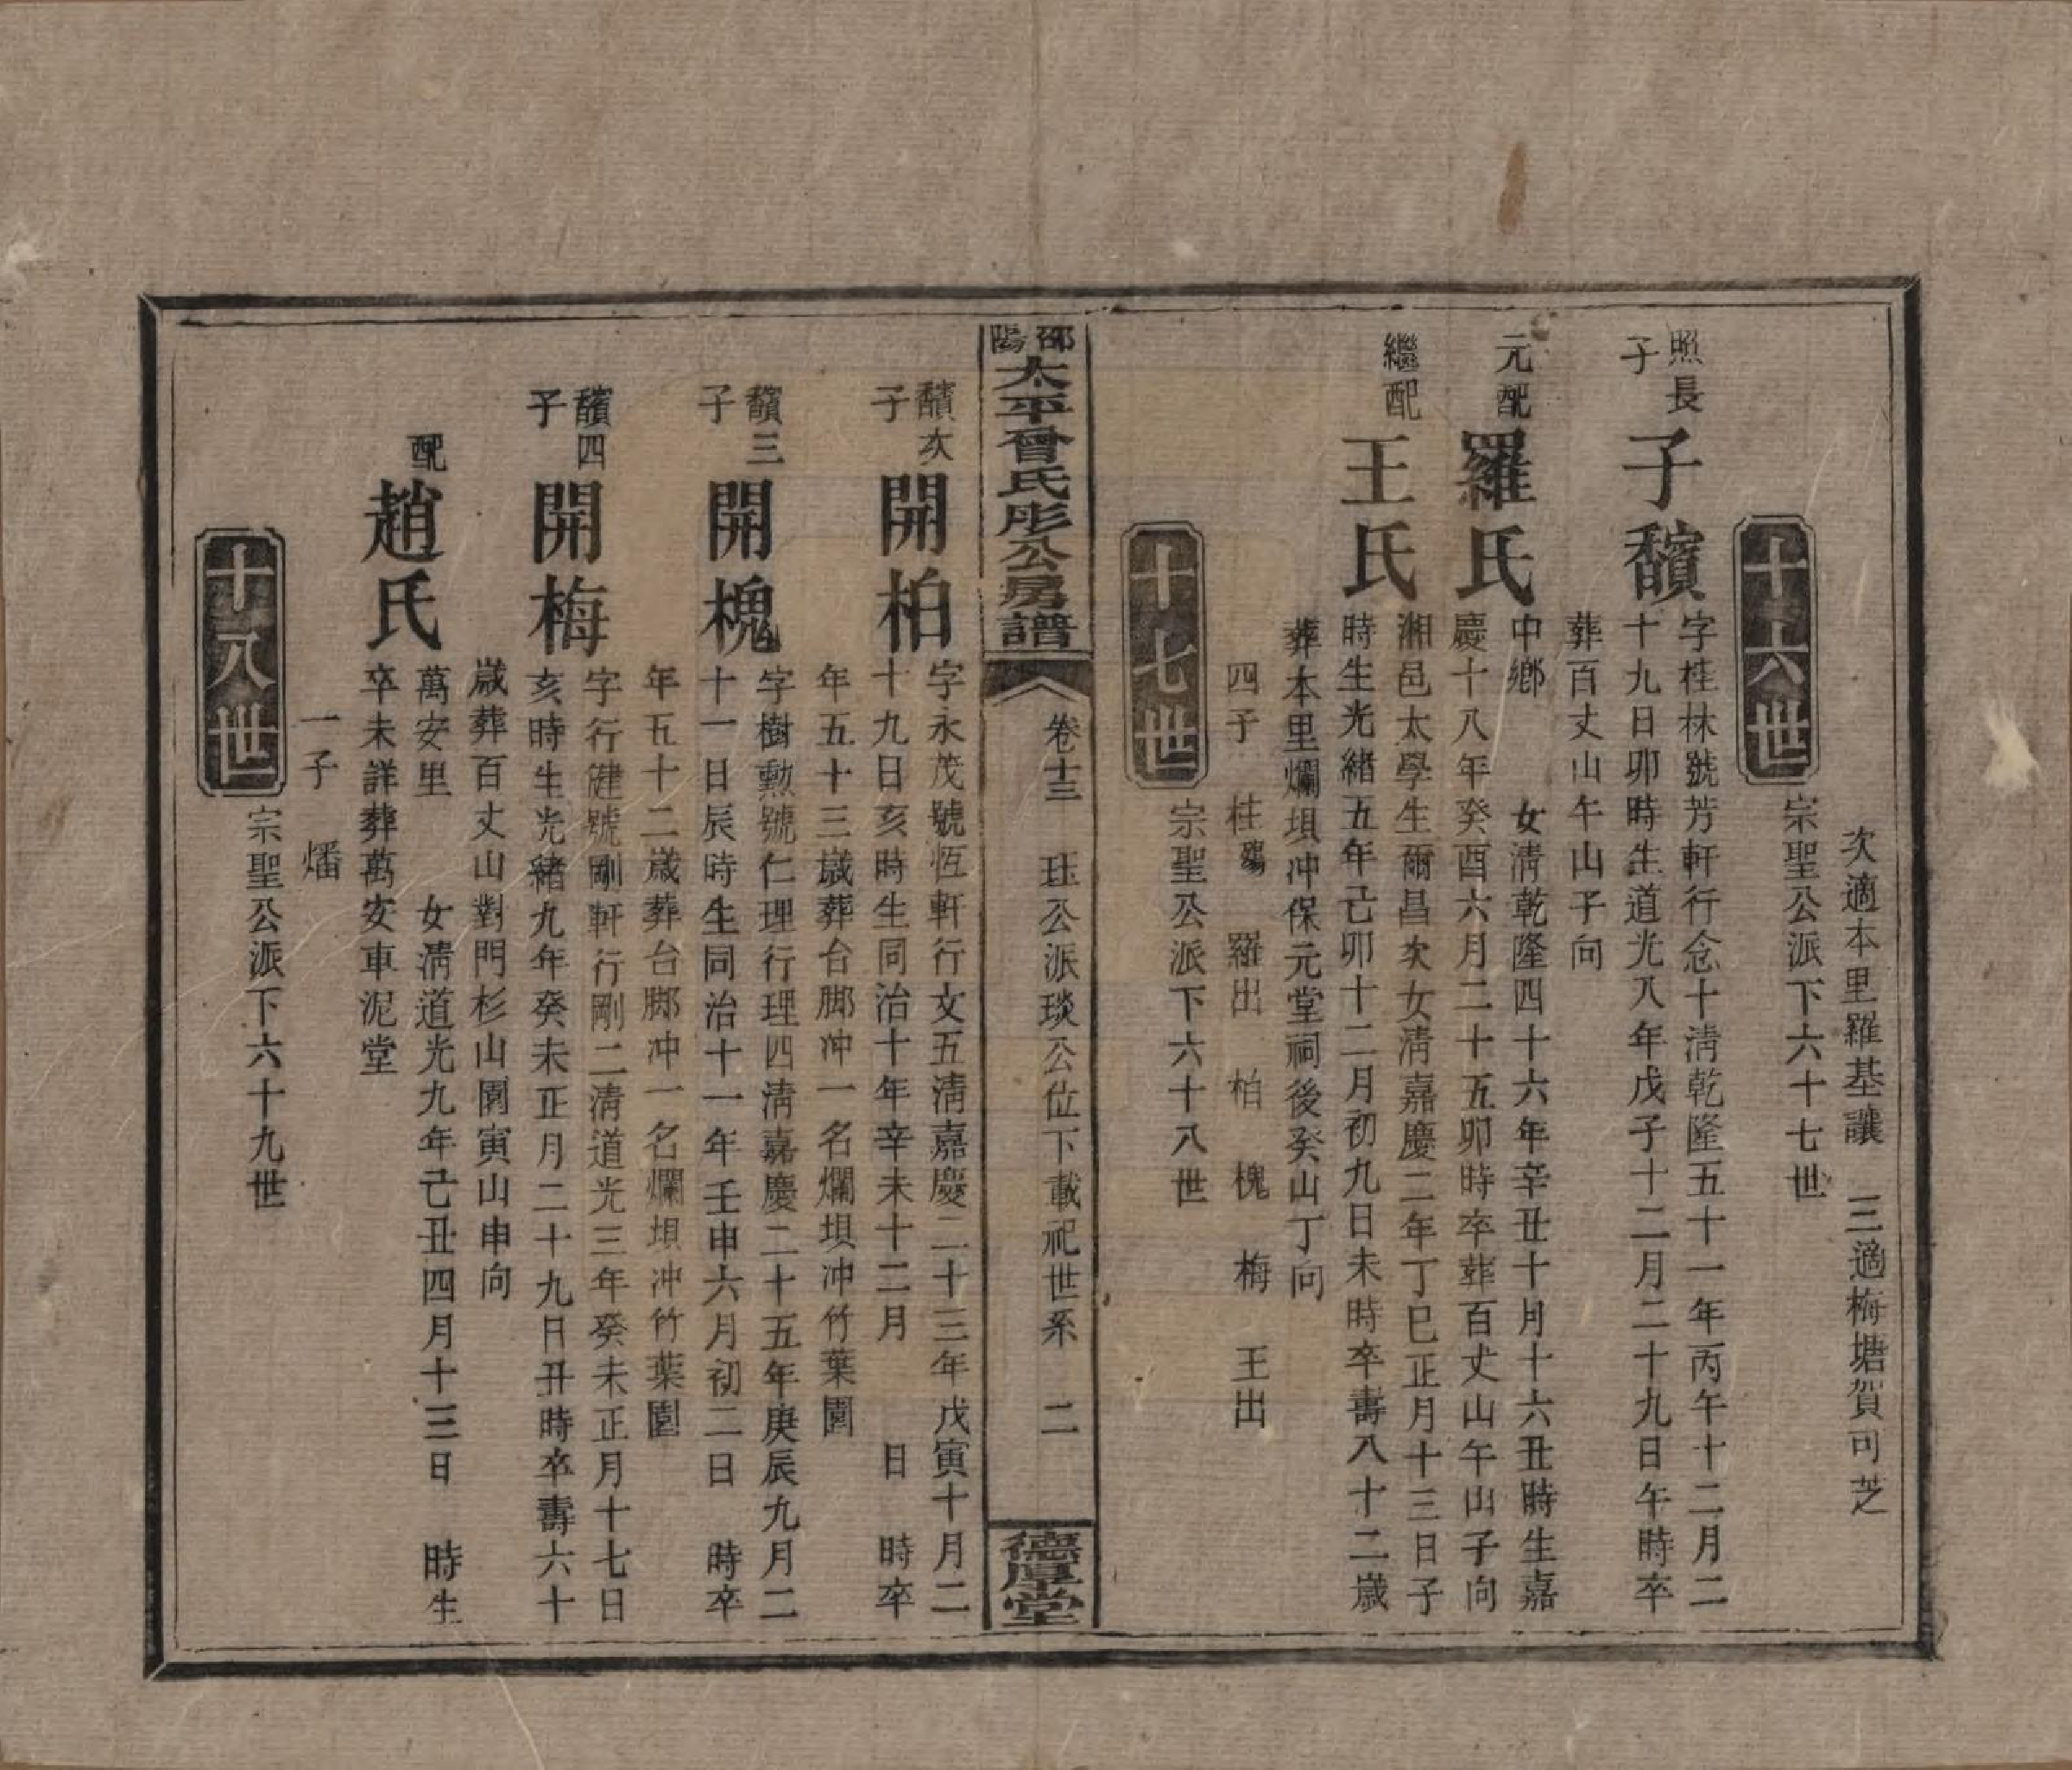 次適本里羅基讓　三適梅塘賀可芝
十六世
宗聖公派下六十七世
照長子
子馪
字桂林號芳軒行念十淸乾隆五十一年丙午十二月二
十九日卯時生道光八年戊子十二月二十九日午時卒
葬百丈山午山子向
元配
羅氏
中鄉　　女淸乾隆四十六年辛丑十月十六丑時生嘉
慶十八年癸酉六月二十五卯時卒葬百丈山午山子向
繼配
王氏
湘邑太學生爾昌次女淸嘉慶二年丁巳正月十三日子
時生光緒五年己卯十二月初九日未時卒壽八十二歲
葬本里爛垻冲保元堂祠後癸山丁向
四子　桂殤　羅出　柏　槐　梅　王出
十七世
宗聖公派下六十八世
邵陽太平曾氏彤公房譜
卷十三　珏公派琰公位下載祀世系　二
德厚堂
馪次子
開柏
字永茂號恆軒行文五淸嘉慶二十三年戊寅十月二
十九日亥時生同治十年辛未十二月　　日　時卒
年五十三歲葬台脚冲一名爛垻冲竹葉園
馪三子
開槐
字樹勲號仁理行理四淸嘉慶二十五年庚辰九月二
十一日辰時生同治十一年壬申六月初二日　時卒
年五十二歲葬台脚冲一名爛垻冲竹葉園
馪四子
開梅
字行健號剛軒行剛二淸道光三年癸未正月十七日
亥時生光緒九年癸未正月二十九日丑時卒壽六十
歲葬百丈山對門杉山園寅山申向
配
趙氏
萬安里　　女淸道光九年己丑四月十三日　時生
卒未詳葬萬安車泥堂
一子　燔
十八世
宗聖公派下六十九世